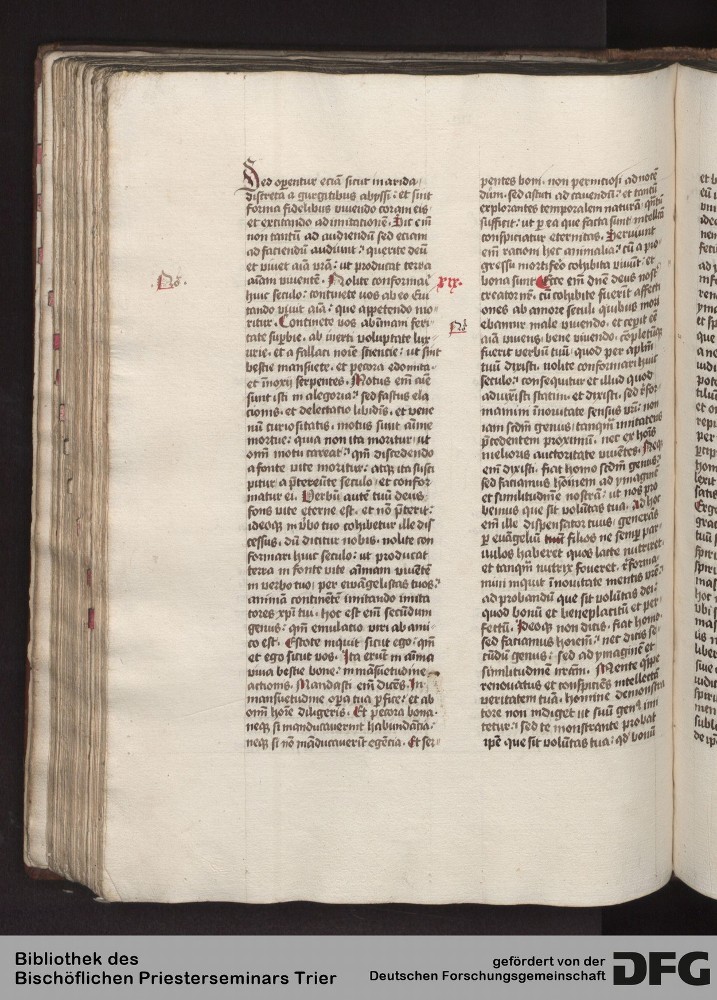 Sed operentur eciā sicut in arida
discreta a gurgitibus abyssi : et sint
forma fidelibus viuendo coram eis
et excitando ad imitationē . Sic em̄
non tantū ad audiendū sed eciam
ad faciendū audiunt : querite deū
et viuet aīa vrā : ut producat terra
aīam viuentē . Nolite conformari
.No.
huic seculo : continete vos ab eo Eui
tando viuit aīa : que appetendo mo
ritur . Continete vos ab īmani feri
tate supbie . ab inerti voluptate lux
urie . et a fallaci noīe sciencie : ut sint
bestie mansuete . et pecora edomita .
et innoxij serpentes . Motus em̄ aīe
sunt isti in alegoria : sed fastus ela
cionis . et delectatio libidīs . et vene
nū curiositatis . motus sunt aīme
mortue : quia non ita moritur ut
omī motu careat : qm̄ discedendo
a fonte vite moritur : atqz ita susci
pitur a p̄tereūte seculo et confor
matur ei . Verbū autē tuū deus
fons vite eterne est . et nō p̄terit :
ideoqz in v̄bo tuo cohibetur ille dis
cessus . dū dicitur nobis . nolite con
formari huic seculo : ut producat
terra in fonte vite aīmam viuētē
in verbo tuo per ewāgelistas tuos :
aīmā continētē imitando imita
tores xp̄i tui . hoc est em̄ secūdum
genus : qm̄ emulatio viri ab ami
co est . Estote inquit sicut ego : qm̄
et ego sicut vos . Ita erūt in aīma
viua bestie bone : in māsuetudine
actionis . Mandasti em̄ dicēs . In
mansuetudine opa tua p̄fice : et ab
omī hoīe diligeris . Et pecora bona .
neqz si manducauerint habundātia :
neqz si nō māducauerīt egētia . Et ser
pentes boni . non pernitiosi ad nocē
dum . sed astuti ad cauendū : et tantū
explorantes temporalem naturā . qn̄tū
sufficit : ut p ea que facta sunt intellcā
conspiciatur eternitas . Seruiunt
em̄ rationi hec animalia : cū a pro
gressu mortifeo cohibita viuūt : et
xix.
bona sunt Ecce em̄ dn̄e deus nost̄
creator nr̄ . cū cohibite fuerīt affecti
ones ab amore seculi quibus mori
ebamur male viuendo . et cepit eē
No
aīa viuens . bene viuendo . cōpletūqz
fuerit verbū tuū . quod per aplm̄
tuū dixisti . nolite conformari huic
seculo : consequitur et illud quod
adiūxisti statim . et dixisti . sed r̄for
mamini in nouitate sensus vrī : non
iam scdm̄ genus . tanqm̄ imitantes
p̄cedentem proximū . nec ex hoīs
melioris auctoritate viuētes . Neqz
em̄ dixisti . fiat homo scdm̄ genus :
sed faciamus hoīnem ad ymaginē
et similitudinē nostrā : ut nos pro
bemus que sit volūtas tua . Ad hoc
em̄ ille dispensator tuus . generās
p euāgeliū filios ne semp par
uulos haberet quos lacte nutriret .
et tanqm̄ nutrix foueret . r̄forma
mini inquit ī nouitate mentis vr̄e :
ad probandū que sit volūtas dei :
quod bonū et beneplacitū et per
fectū . Ideoqz non dicis . fiat homo :
sed faciamus hoīnem : nec dicis se
cūdū genus : sed ad ymaginē et
similitudinē nrām . Mente qp̄pe
renouatus et conspiciēs intellectā
veritatem tuā . homīne demonstra
tore non indiget ut suū gen9 imi
tetur : sed te monstrante probat
ip̄e que sit volūtas tua : qd̄ bonū
Bibliothek des
Bischöflichen Priesterseminars Trier
gefördert von der
Deutschen Forschungsgemeinschaft
DFG